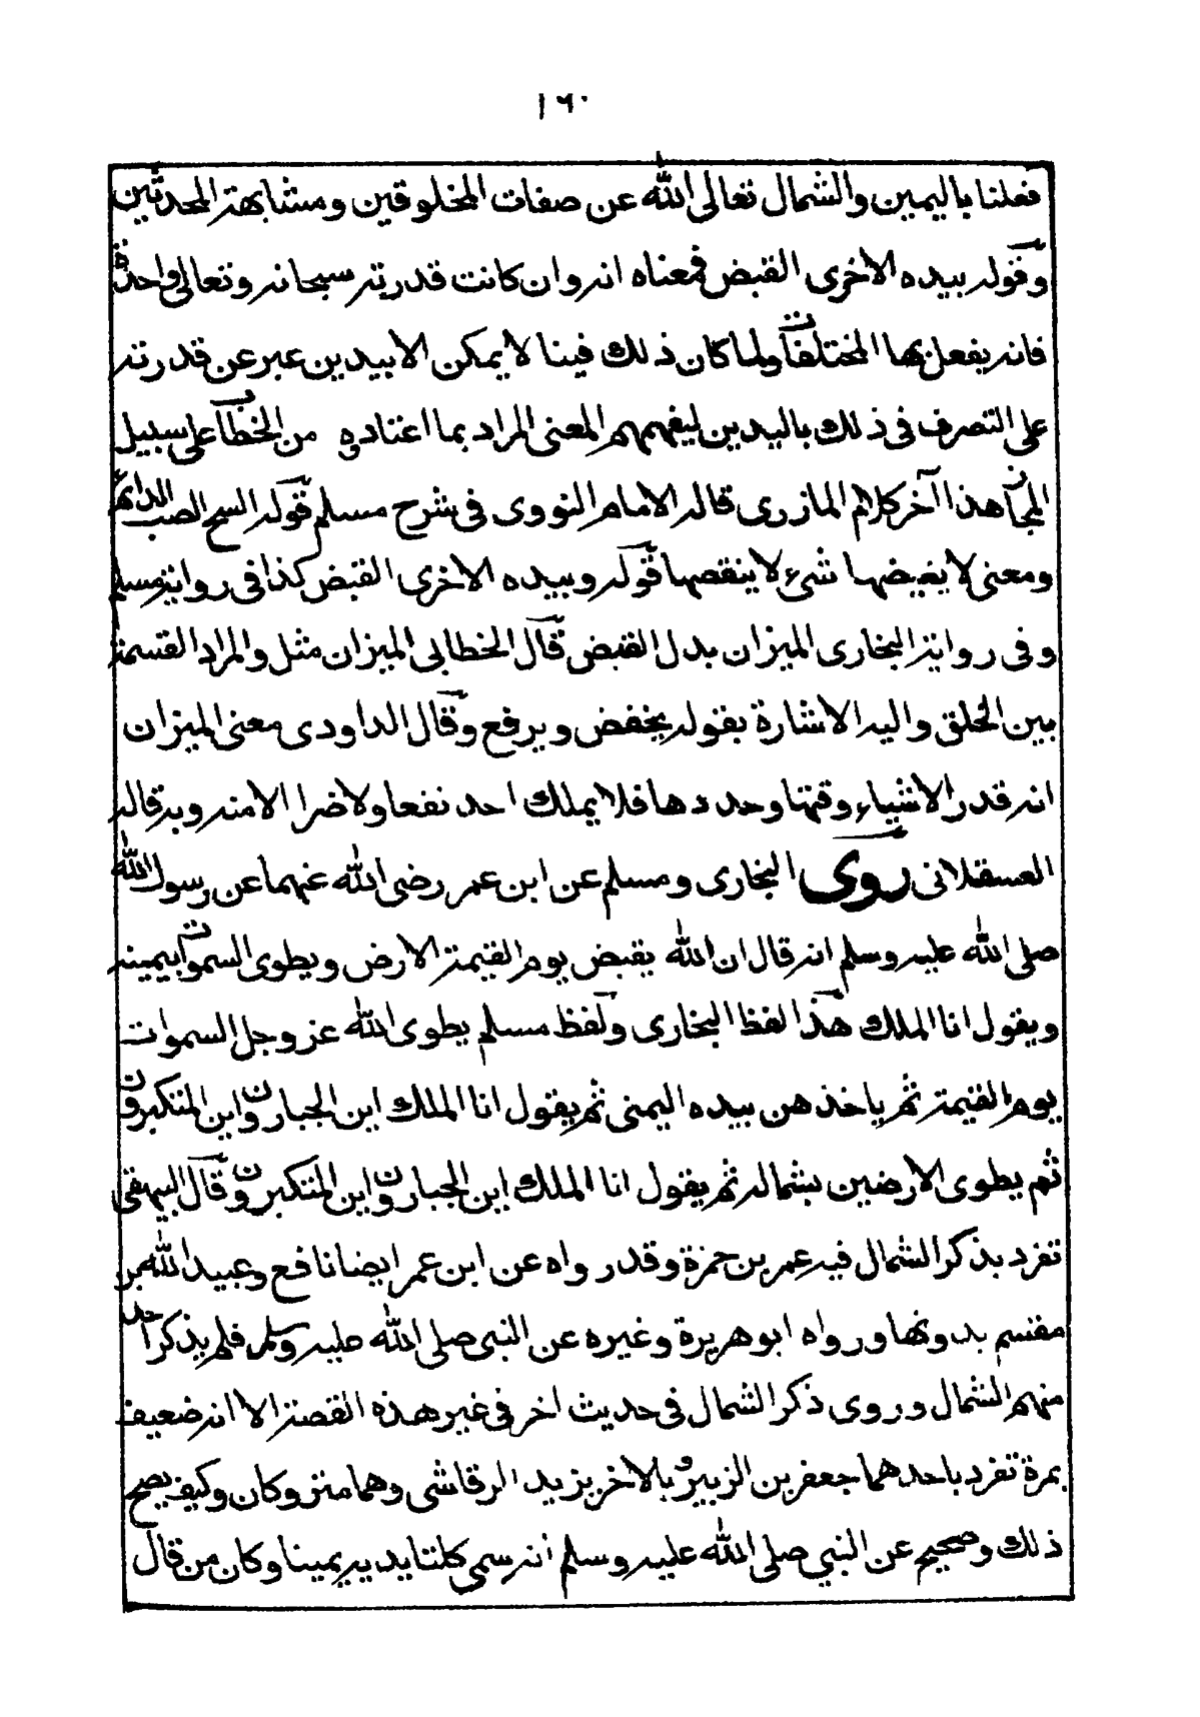 ١٦٠
فعلنا باليمين والشمال تعالى الله عن صفات المخلوقين ومشابهة المحدثين
وقوله بيده الاخرى القبض فمعناه انه وان كانت قدرته سبحانه وتعالى واحدة
فانه يفعل بها المختلفات ولما كان ذلك فينا لا يمكن الا بيدين عبر عن قدرته
على التصرف فى ذلك باليدين ليفهمهم المعنى المراد بما اعتادوه من الخطاب على سبيل
المجاز هذا آخر كلام المازرى قاله الامام النووى فى شرح مسلم قوله السح الصب الدائم
ومعنى لا يغيضها شىء لا ينقصها قوله وبيده الاخرى القبض كذا فى رواية مسلم
وفى رواية البخارى الميزان بدل القبض قال الخطابى الميزان مثل والمراد القسمة
بين الخلق واليه الاشارة بقوله يخفض ويرفع وقال الداودى معنى الميزان
انه قدر الاشياء وقتها وحددها فلا يملك احد نفعا ولا ضرا الا منه وبه قاله
العسقلانى روى البخارى ومسلم عن ابن عمر رضى الله عنهما عن رسول الله
صلى الله عليه وسلم انه قال ان الله يقبض يوم القيمة الارض ويطوى السموات بيمينه
ويقول انا الملك هذا لفظ البخارى ولفظ مسلم يطوى الله عز وجل السموات
يوم القيمة ثم ياخذهن بيده اليمنى ثم يقول انا الملك اين الجبارون واين المتكبرون
ثم يطوى الارضين بشماله ثم يقول انا الملك اين الجبارون واين المتكبرون وقال البيهقى
تفرد بذكر الشمال فيه عمر بن حمزة وقد رواه عن ابن عمر ايضا نافع وعبيد الله بن
مقسم بدونها ورواه ابو هريرة وغيره عن النبى صلى الله عليه وسلم فلم يذكر احد
منهم الشمال وروى ذكر الشمال فى حديث اخر فى غير هذه القصة الا انه ضعيف
بمرة تفرد باحدهما جعفر بن الزبير وبالاخر يزيد الرقاشى وهما متروكان وكيف يصح
ذلك وصحيح عن النبي صلى الله عليه وسلم انه سمى كلتا يديه يمينا وكان من قال